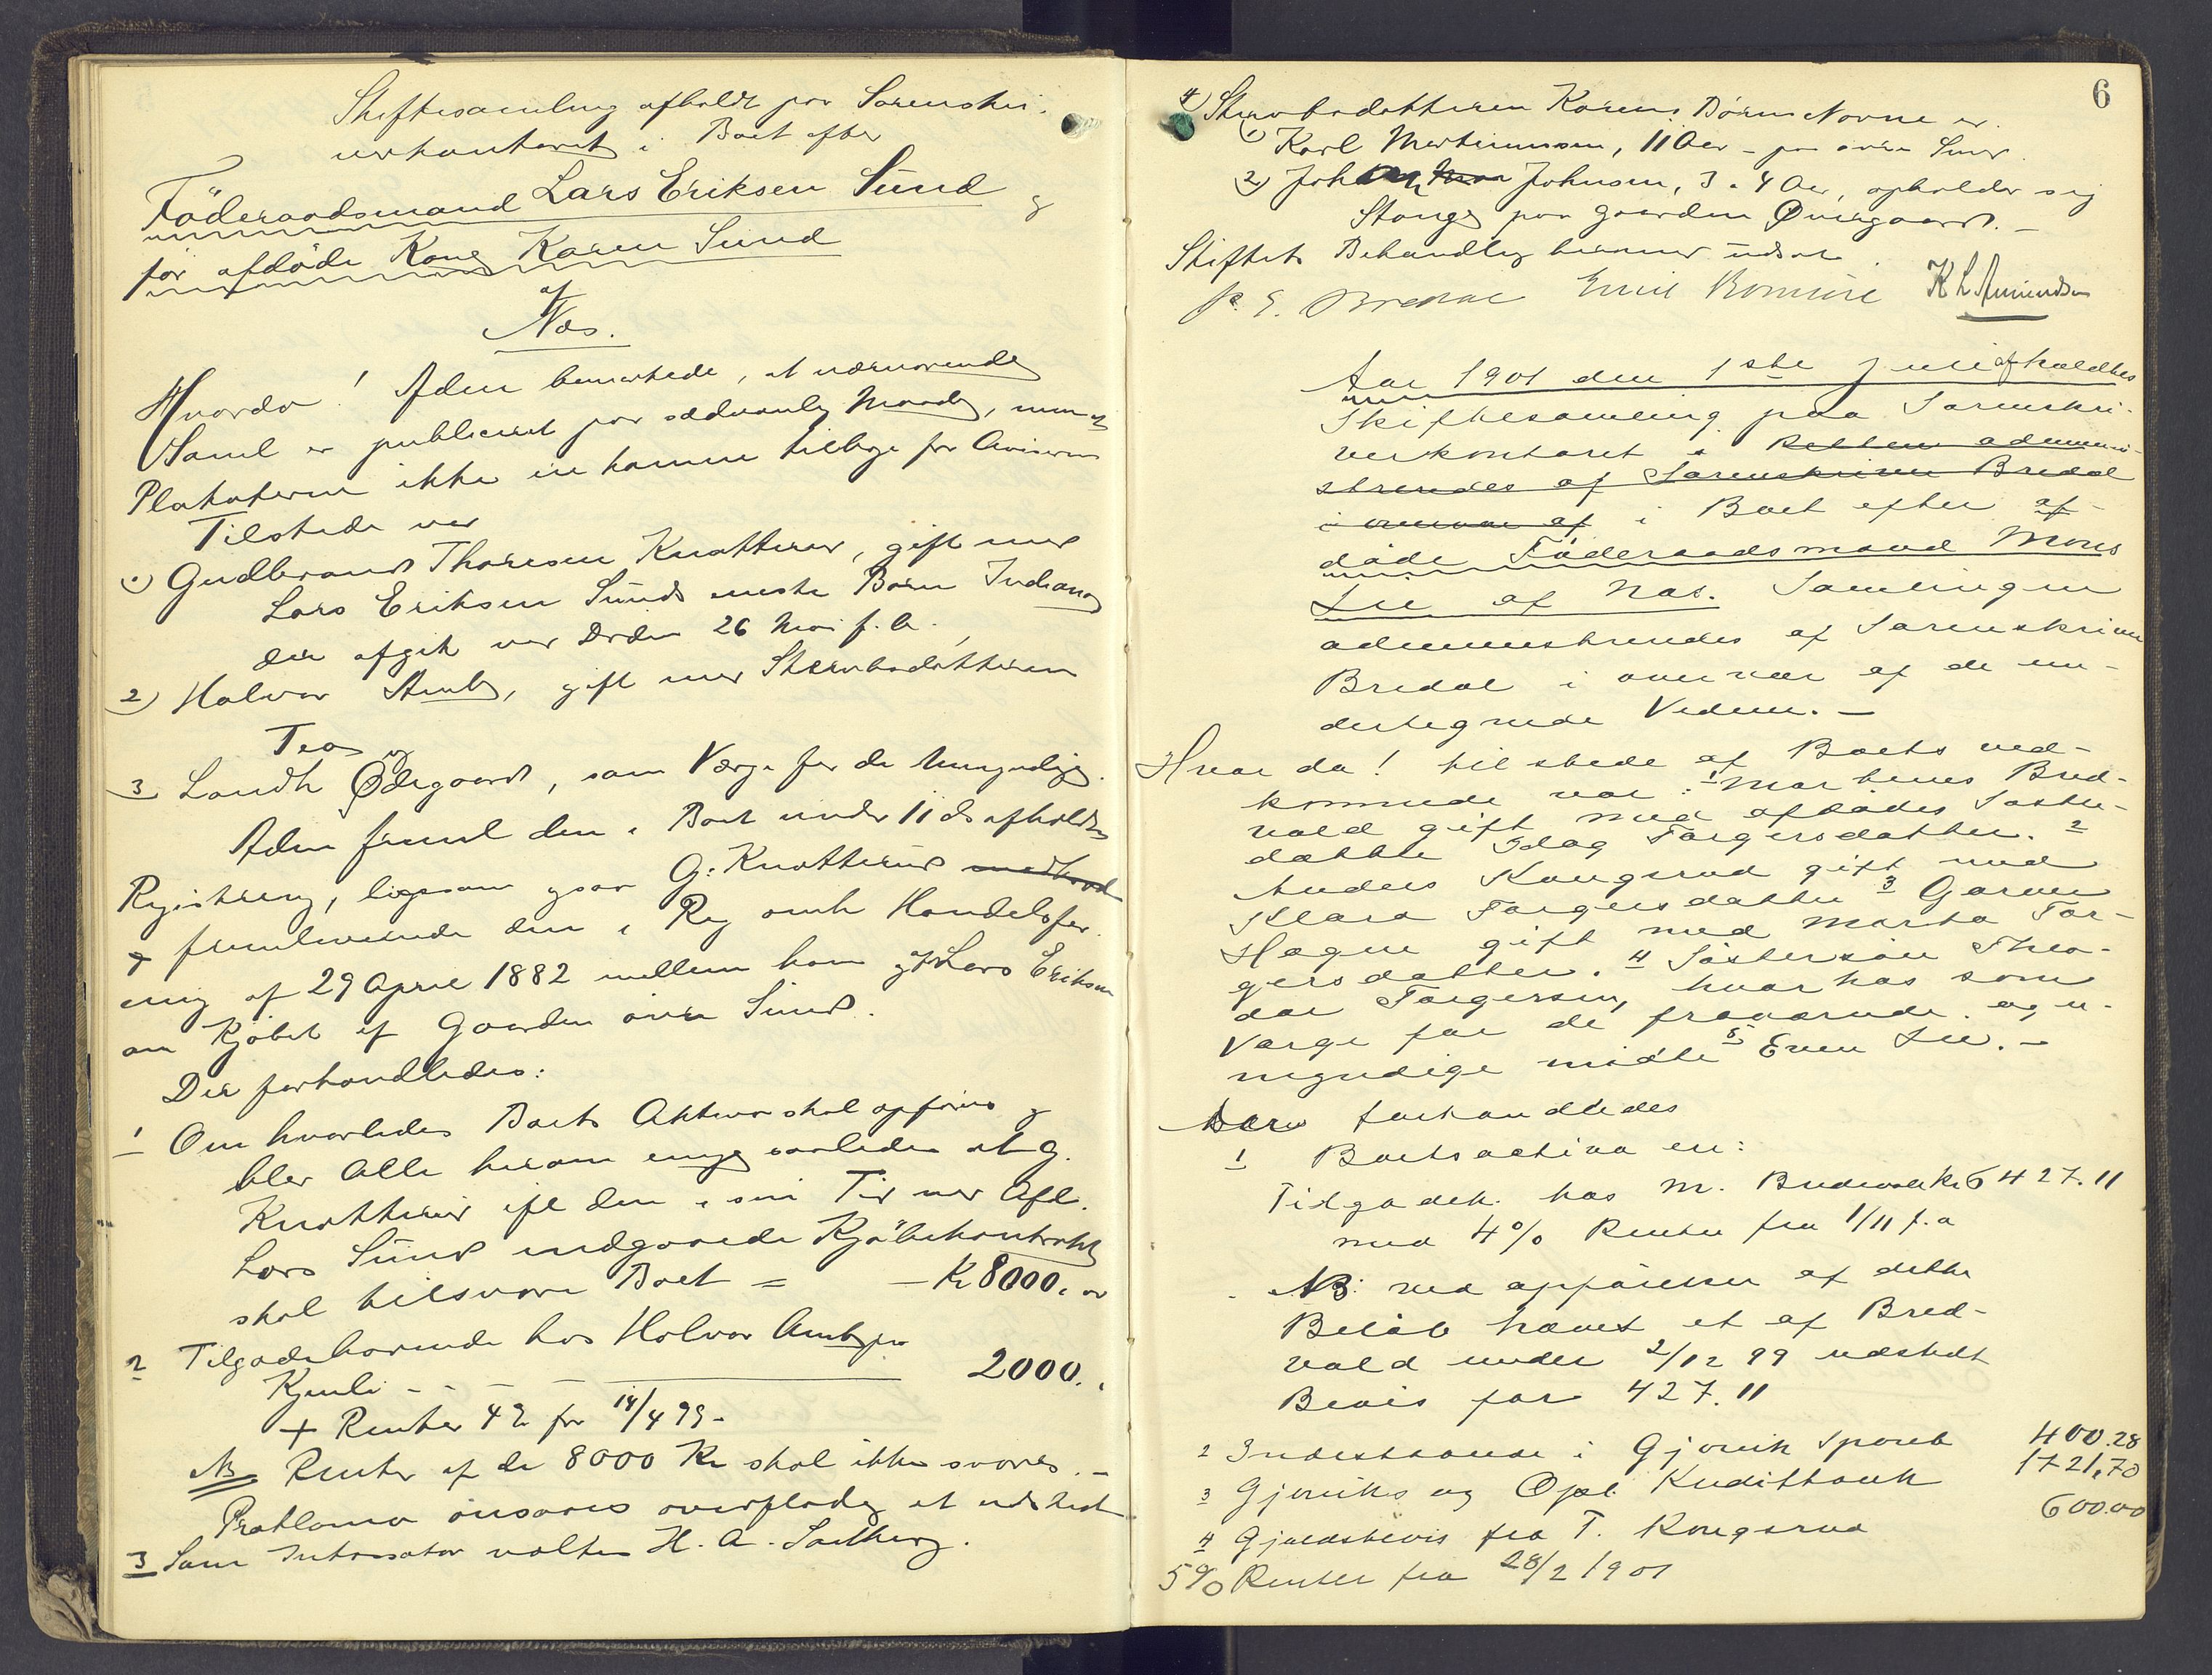 Skiftesamling afholdt paa Sorenskri-
verkontoret i Boet efter
Föderaadsmand Lars Eriksen Sund og
før afdöde Kone Karen Sund
af
Næs.
Hvorda! Adm bemærkede, at nærværende
Saml er publiceret paa sædvanlig Maade, men at
Plakaterne ikke er komne tilbage fra Aviserne
Tilstede var
1) Gudbrand Thoresen Knatterud, gift med
Lars Eriksen Sunds eneste Barn Indiana
der afgik ved Döden 26 Mai f. A.
2) Halvor Amb, gift med Stervbodatteren
Tea og
3 Landh Ødegaard, som Værge for de Umyndige.
Adm freml den i Boet under 11 ds afholdte
Registrering, ligesom ogsaa G. Knatterud
+ fremleverede den i Reg omh Handelsfor-
ening af 29 April 1882 mellem ham og Lars Eriksen
om Kjöbet af Gaarden övre Sund.
Der forhandledes:
1 Om hvorledes Boets Aktiva skal opføres og
blev Alle herom enige saaledes at G.
Knatterud ifl den i sin Tid med Afd.
Lars Sund indgaaede Kjöbekontrakt
skal tilsvare Boet = - Kr 8000, 00
2 Tilgodehavende hos Halvor Amb paa
Kjenli - - - - 2000. "
+ Renter 4 % fra 14/4 99 -
NB Renter af de 8000 Kr skal ikke svares. -
Proklama ansaaes overflödig at udstede
3 Som Inkassator valtes H. A. Sælberg.
6
4) Stervbodatteren Karens Børns Navne er
1) Karl Martinussen, 11 Aar - paa övre Sund.
2) Johan Johnsen, 3 a 4 Aar, opholder sig
Stange paa Gaarden Øvergaard. -
Skiftets Behandling herunder udsat.
P. E. Bredal Emil Bonnire K L Amundsen
Aar 1901 den 1ste Juli afholdtes
Skiftesamling paa Sorenskri-
verkontoret i Retten admini-
streredes af Sorenskriver Bredal
i overvær af i Boet efter af-
døde Föderaadsmand Mons
Lie af Næs. Samlingen
administreredes af Sorenskriver
Bredal i overvær af de un-
dertegnede Vidner. -
Hvor da! tilstede af Boets ved-
kommende var: 1 Martinus Bred-
vold gift med afdødes Søster-
datter Idag Torgersdatter. 2
Anders Kongsrud gift med
Klara Torgersdatter 3 Garun
Hagen gift med Marta Tor-
gersdatter. 4 Søstersøn Theo-
dor Torgersen, hvorhos som
Værge for de fraværende og u-
myndige mødte 5 Even Lie. -
Der forhandledes
1 Boets activa er:
Tilgodeh. hos M. Bredvold Kr 6427.11
med 4% Renter fra 1/11 f. a
NB: ved opførelsen af dette
Beløb hævet et af Bred-
vold under 2/12 99 udstedt
Bevis for 427.11
2 Indestaaende i Gjøvik Spareb 400.28
3 Gjøviks og Opl. Kreditbank 1721.70
4 Gjældsbevis fra T. Kongsrud 600.00
5% Renter fra 28/2 1901